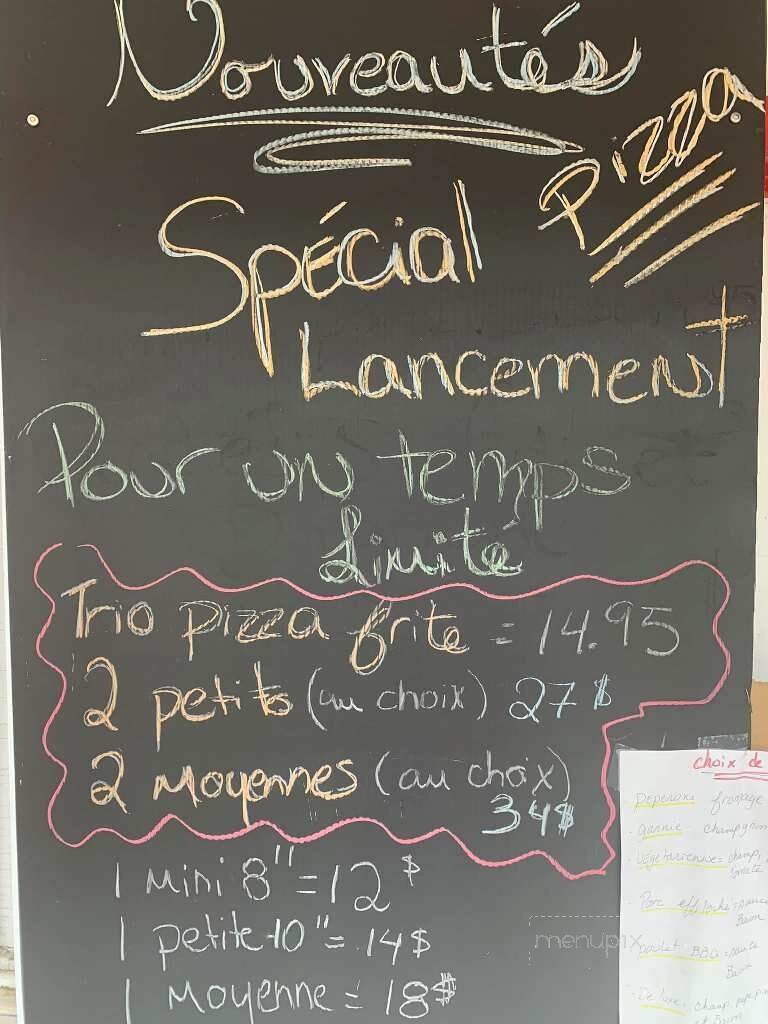 Nouveautés
Pizza
Spécial
Lancement
Pour un temps
Limité
Trio pizza frite = 14.95
2 petits (au choix) 27$
2 Moyennes (au choix)
34$
1 Mini 8" = 12$
1 petite 10" = 14$
1 Moyenne = 18$
choix de
- peperoni fromage
- garnie champignon
- végétarienne = champ,
- Porc effiloché =
Baum
- poulet BBQ = sauce
Baum
- De luxe, champ, pepe
Baum
menupix